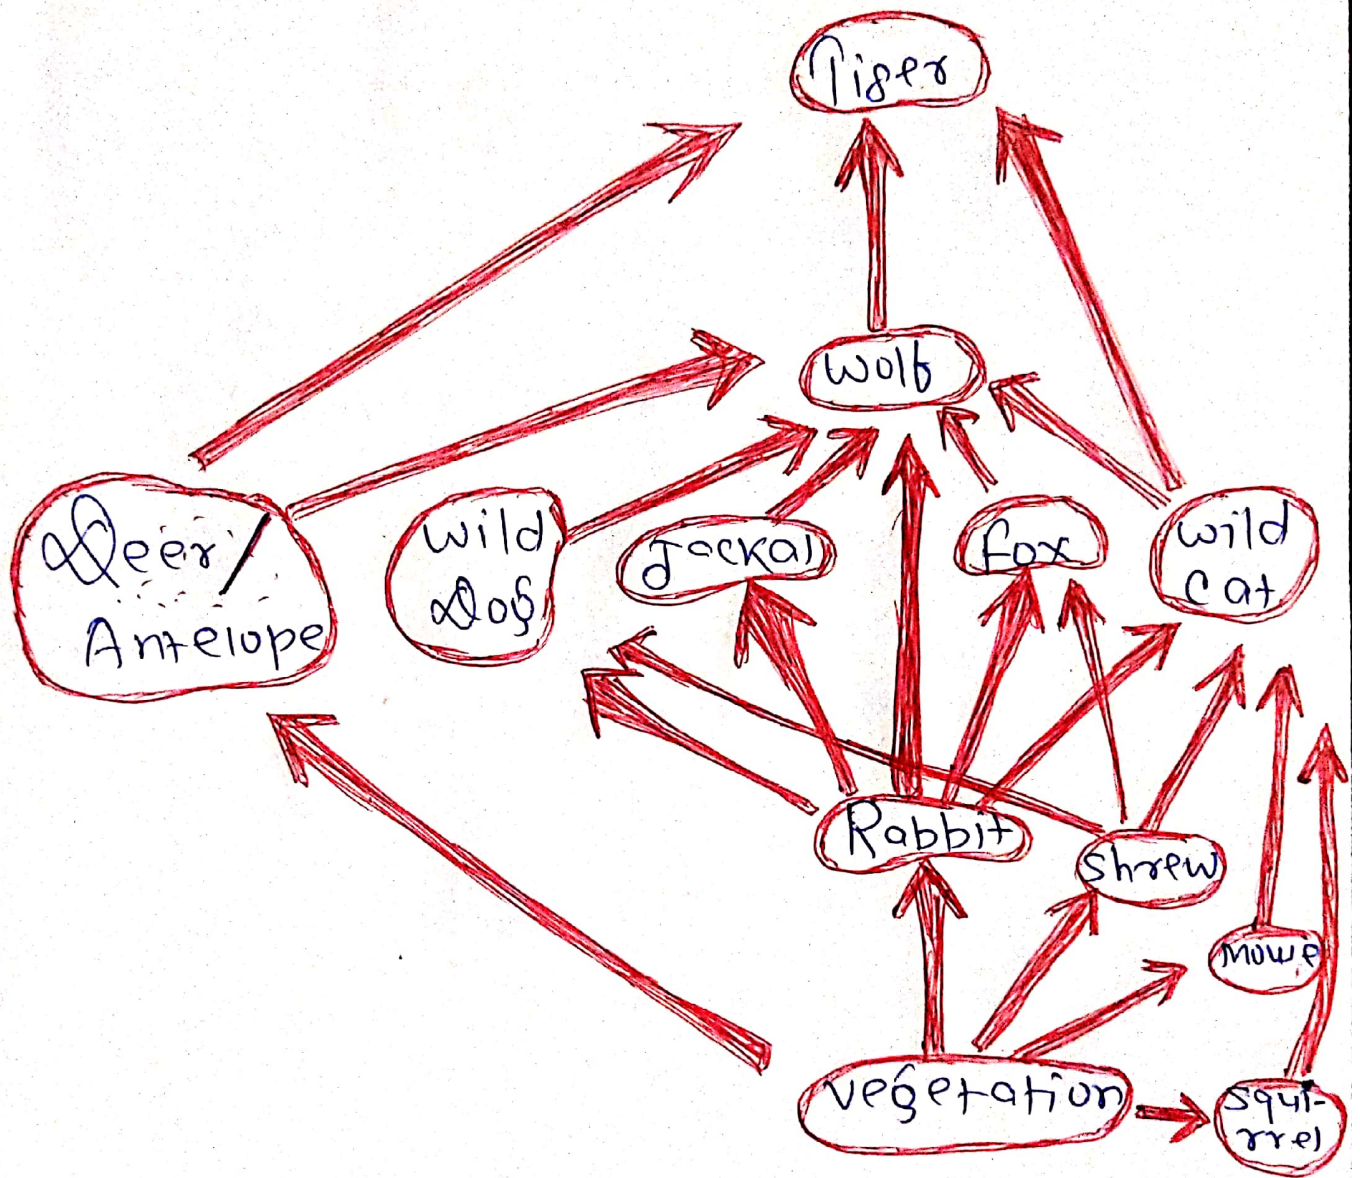 Tiger
Wolf
Deer/
Antelope
Wild
Dog
Jackal
Fox
Wild
Cat
Rabbit
Shrew
Mouse
Vegetation
Squi-
rrel